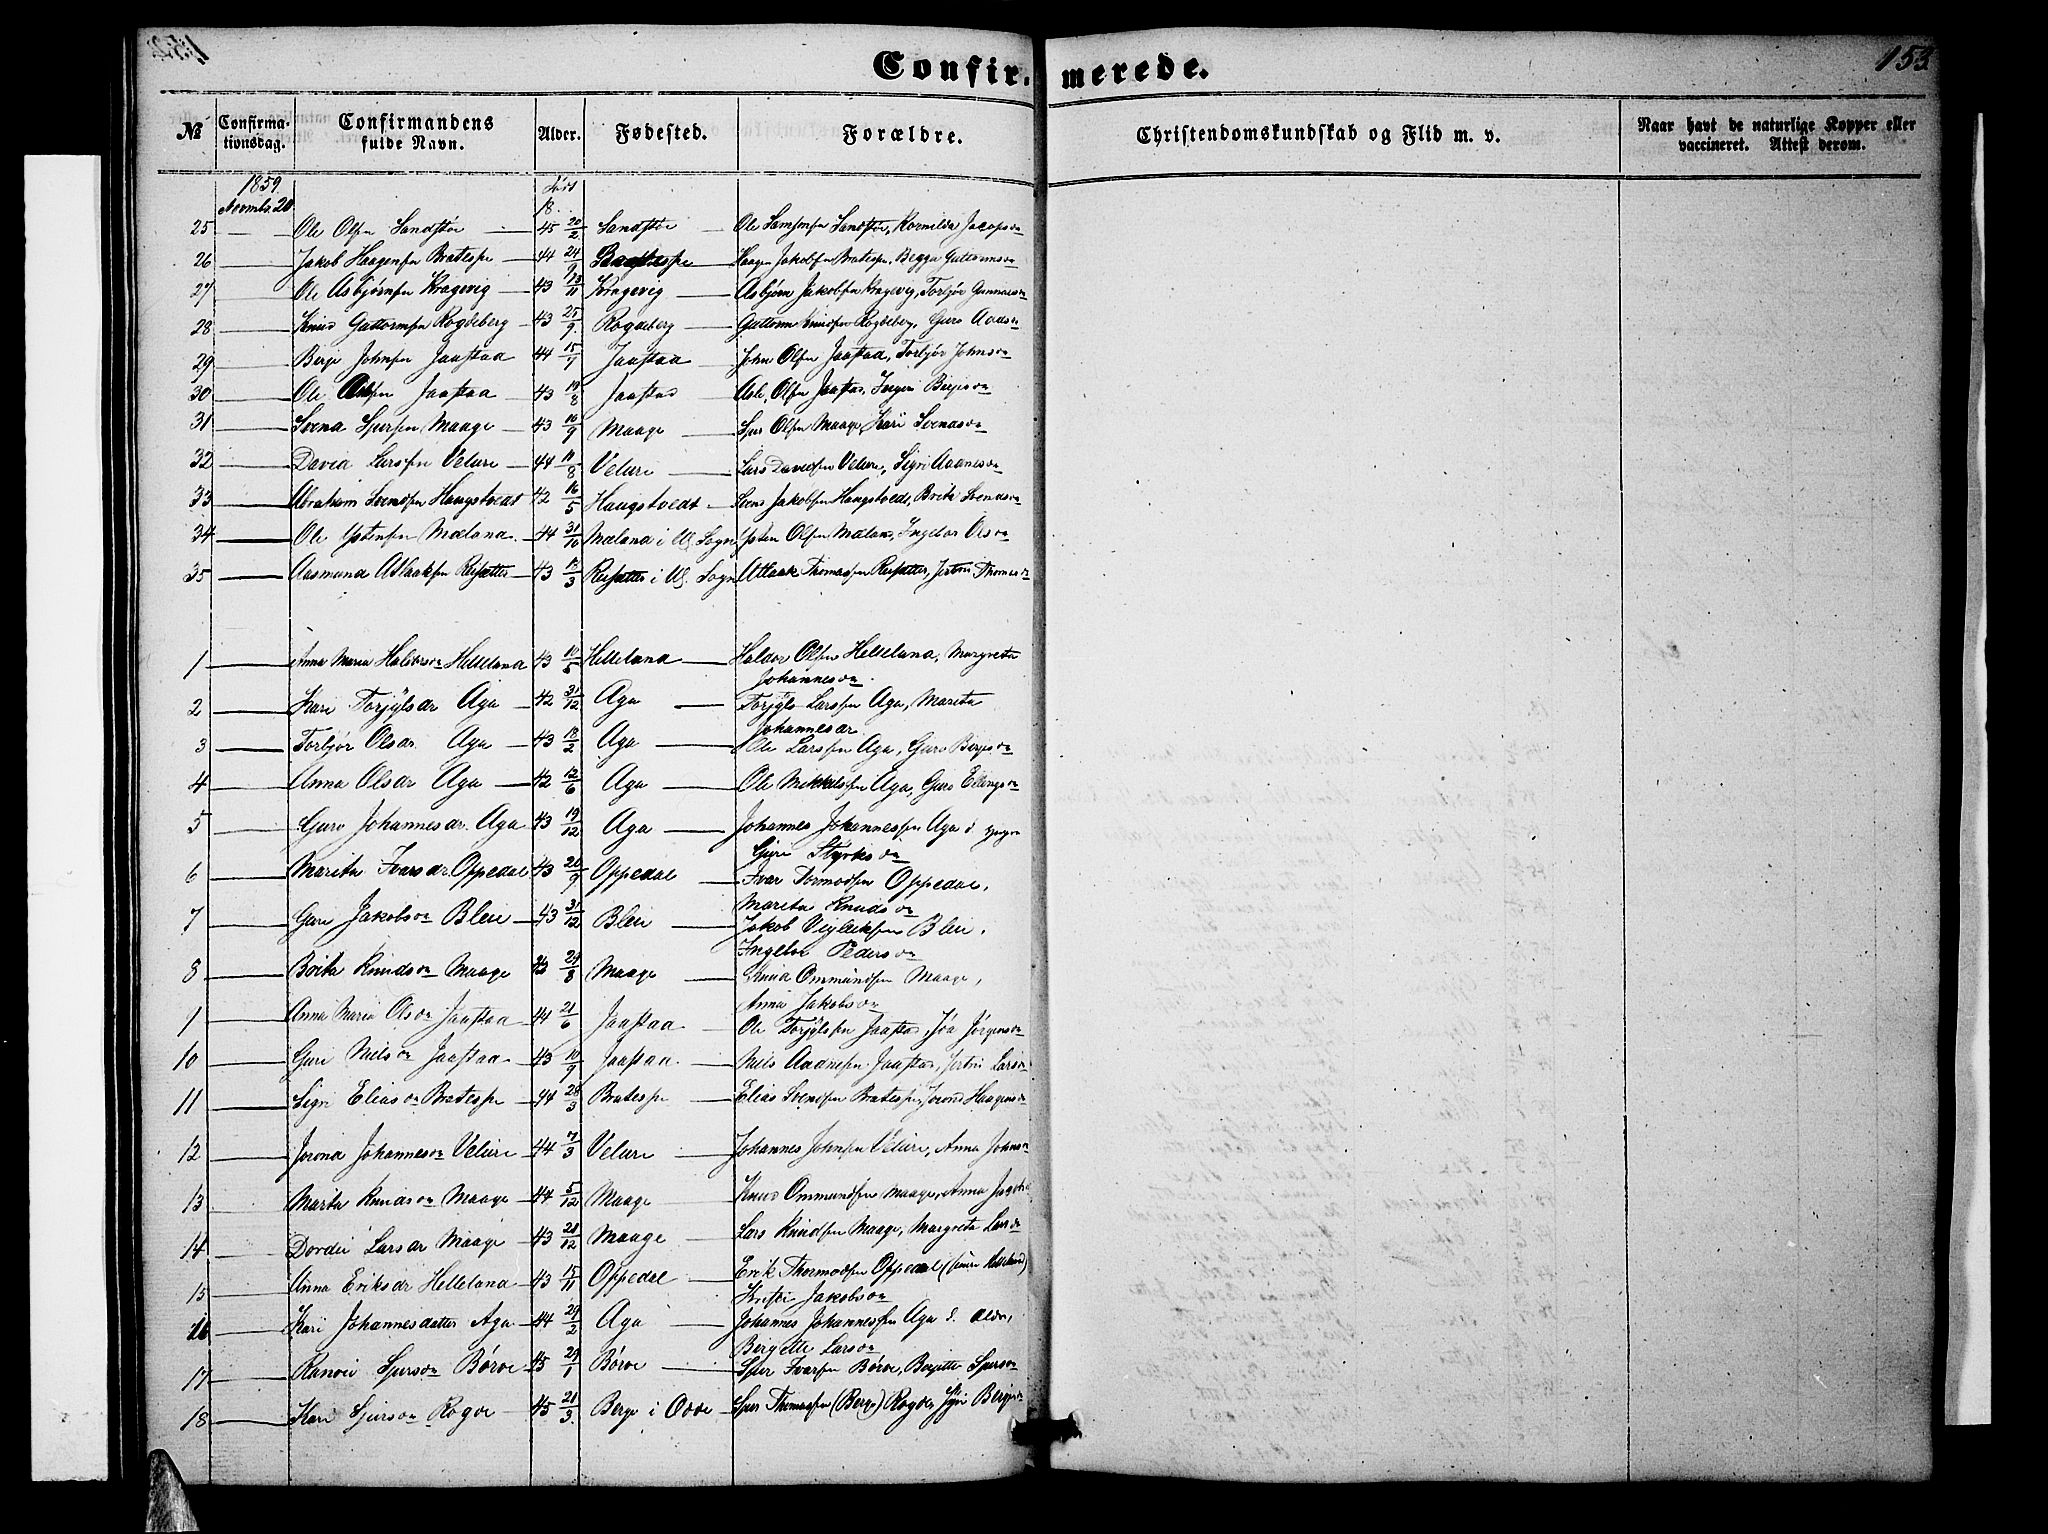 Confirmerede.
153
№
Confirmationsdag.
Confirmandens fulde Navn.
Alder.
Fødested.
Forældre.
Christendomskundskab og Flid m. v.
Naar havt de naturlige Kopper eller vaccineret. Attest derom.
1859. Novmbr. 20
18
25 Ole Olsen Sandstør 45 20/2 Sandstør Ole Samsonsen Sandstør, Jacopsdr
26 Jakob Haagensen Bratespe 44 24/9 Bratespe Haagen Jakobsen Bratespe, Begga Guttormsdr
27 Ole Asbjørnsen Kragevig 43 13/11 Kragevig Asbjørn Jakobsen Kragevig, Torbjør Gunnarsdr
28 Knud Guttormsen Rogdeberg 43 25/9 Rogdeberg Guttorm Knudsen Rogdeberg, Guro Aadsdr
29 Berje Johnsen Jaastad 44 15/7 Jaastad John Olsen Jaastad, Torbjør Johnsdr
30 Ole Jaastad 43 19/8 Jaastad Olsen Jaastad, Ingeri Berjesdr
31 Svend Sjursen Maage 43 10/9 Maage Sjur Olsen Maage, Kari Svendsdr
32 David Larssen Velure 44 11/8 Velure Lars Davidsen Velure, Sigri Aadnesdr
33 Abraham Svendsen Haugstvedt 42 16/5 Haugstvedt Svend Jakobsen Haugstvedt, Brita Svendsdr
34 Ole Ystensen Mæland 44 31/10 Mæland i Ul. Sogn Ysten Olsen Mæland, Ingebor Olsdr
35 Aasmund Aslaksen Reisæter 43 12/3 Reisæter i Ul. Sogn Thomassen Reisæter, Jertru Thomasdr
1 Anna Maria Haldorsdr Helleland 43 10/5 Helleland Haldor Olsen Helleland, Margreta Johannesdr
2 Kari Torjylsdr Aga 42 31/12 Aga Torjyls Larssen Aga, Marita Johannesdr
3 Torbjør Olsdr Aga 43 18/2 Aga Ole Larssen Aga, Guro Berjesdr
4 Anna Olsdr Aga 42 12/6 Aga Ole Mikkelsen Aga, Guro Ellingsdr
5 Guro Johannesdr. Aga 43 19/12 Aga Johannes Johannessen Aga d. yngre Guri Styrksdr
6 Marita Ivarsdr. Oppedal 43 20/9 Oppedal Ivar Tormodsen Oppedal, Marita Knudsdr
7 Guri Jakobsdr Bleie 43 31/12 Bleie Jakob Viglecksen Bleie, Ingebor Pedersdr
8 Brita Knudsdr Maage 43 24/8 Maage Knud Ommundsen Maage, Anna Jakobsdr
1 Anna Maria Olsdr Jaastad 44 21/6 Jaastad Ole Torjylssen Jaastad, Jørgensdr
10 Guri Nilsdr Jaastad 43 10/9 Jaastad Niels Aadnesen Jaastad, Jertru Larsdr
11 Sigri Eliasdr Bratespe 44 28/3 Bratespe Elias Svendsen Bratespe, Jorond Haagensdr
12 Jorond Johannesdr Velure 44 7/3 Velure Johannes Johnsen Velure, Anna Johnsdr
13 Marita Knudsdr Maage 44 5/12 Maage Knud Ommundsen Maage, Anna
14 Dordei Larsdr Maage 43 21/12 Maage Lars Knudsen Maage, Margreta Larsdr
15 Anna Eriksdr Helleland 43 15/11 Oppedal Erik Thormodsen Oppedal (siden Helleland) Kristi Jakobsdr
16 Kari Johannesdatter Aga 44 29/2 Aga Johannes Johannessen Aga d. eldre, Bergitte Larsdr
17 Ranvei Sjursdr Børve 45 29/1 Børve Sjur Ivarsen Børve, Bergitte Sjursdr
18 Kari Sjursdr Rogde 45 21/3. Berge i Odde Sjur Thomassen (Berge) Rogde, Berjesdr